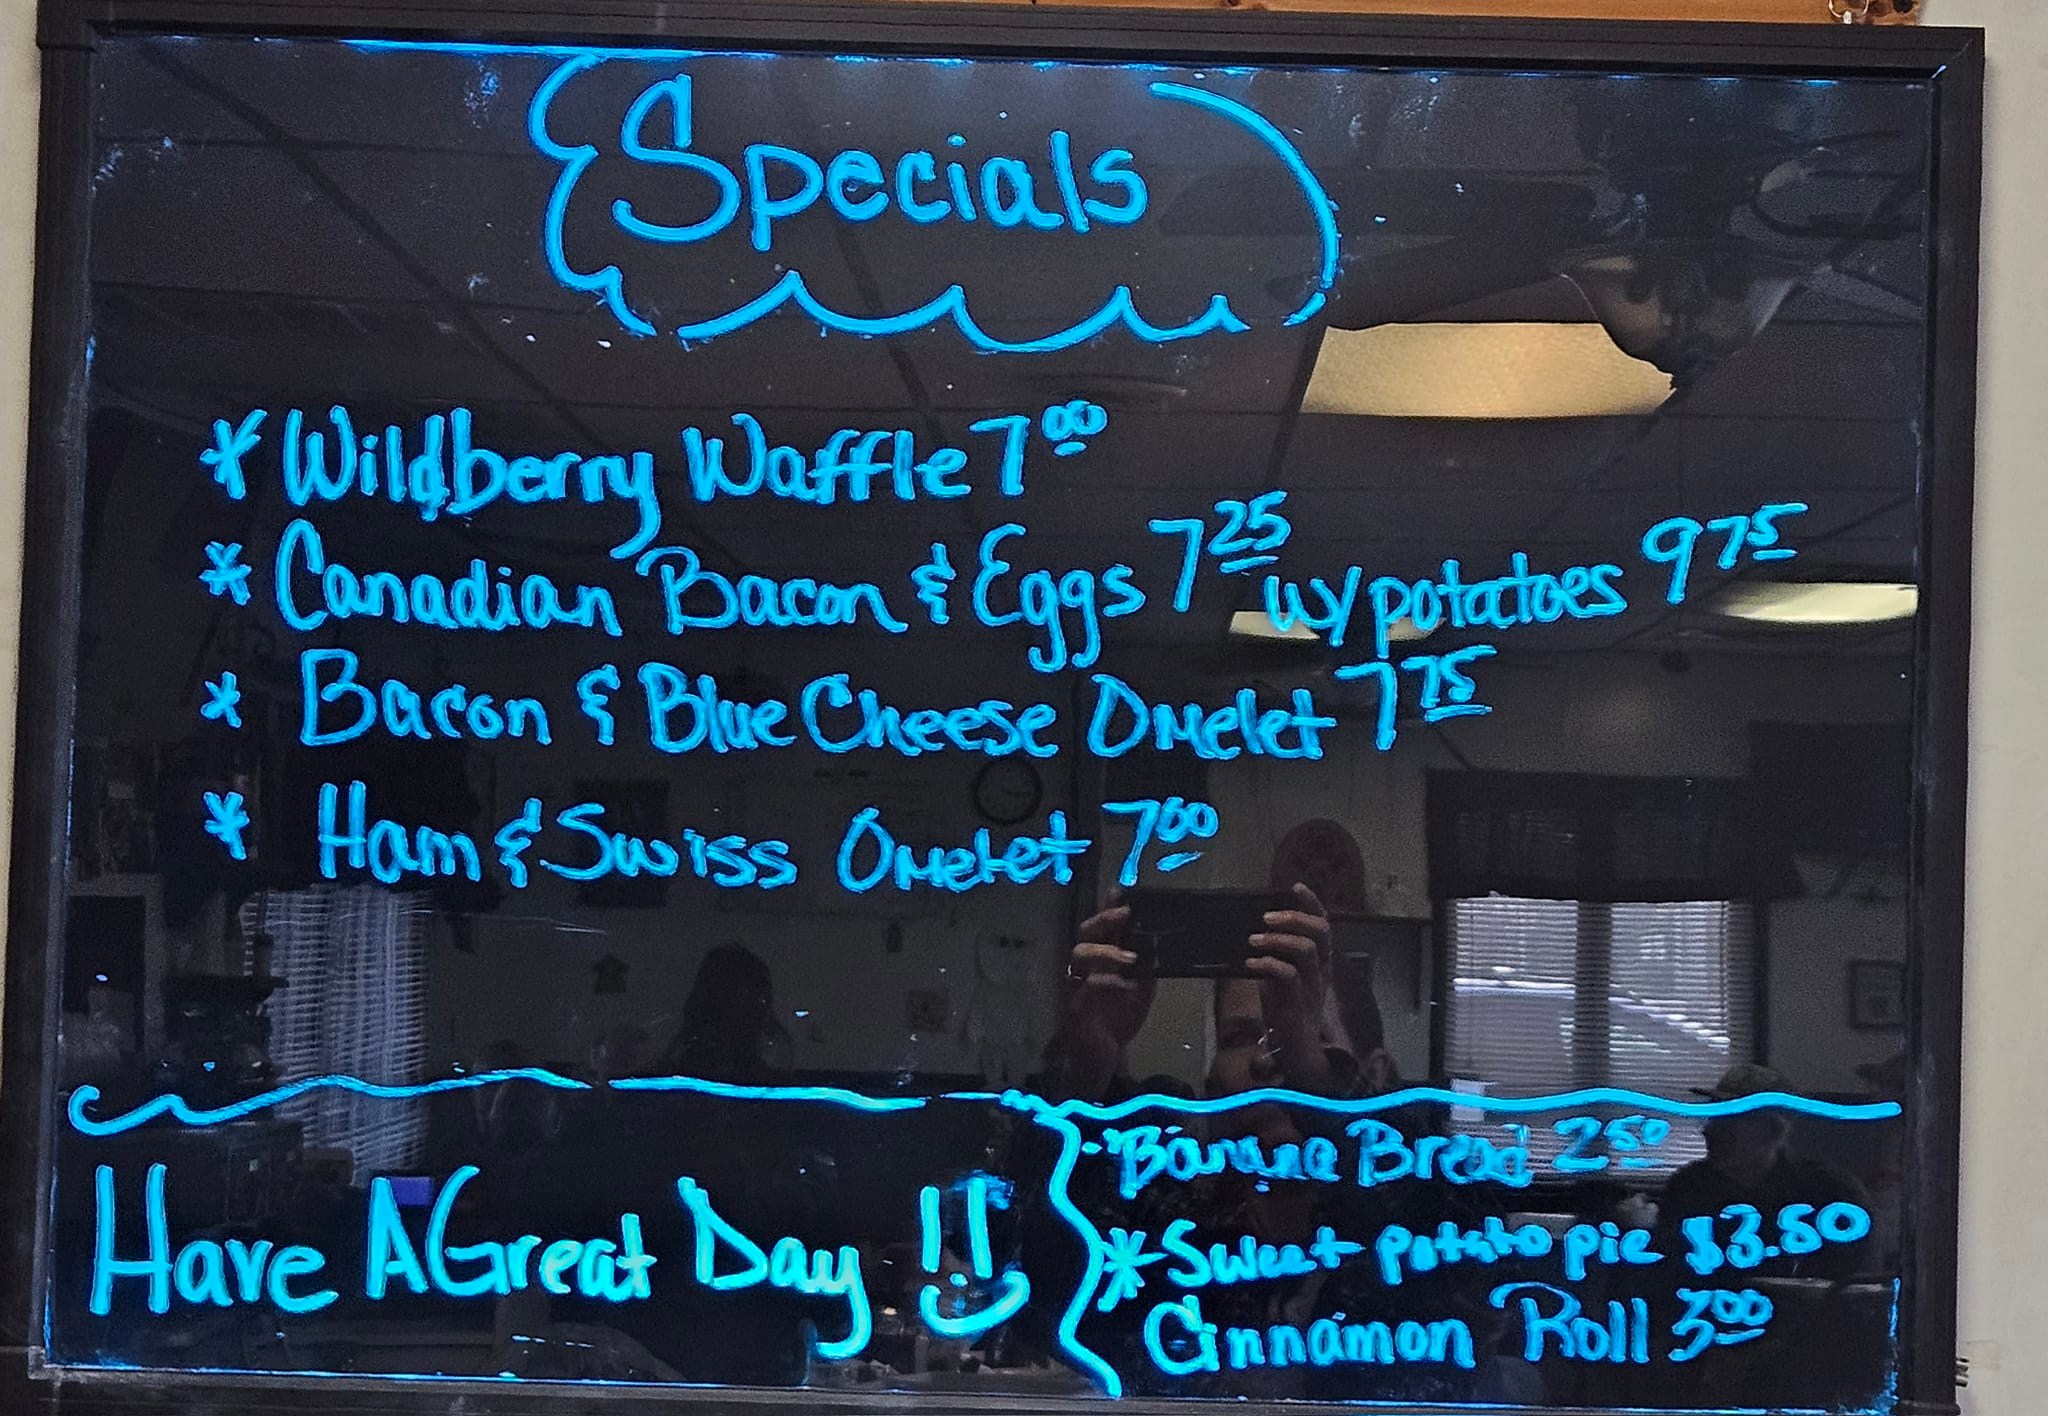 Specials
* Wildberry Waffle 7⁰⁰
* Canadian Bacon & Eggs 7²⁵ w/potatoes 9⁷⁵
* Bacon & Blue Cheese Omelet 7⁷⁵
* Ham & Swiss Omelet 7⁰⁰
Have A Great Day !!
Banana Bread 2⁵⁰
* Sweet potato pie $3.50
Cinnamon Roll 3⁰⁰